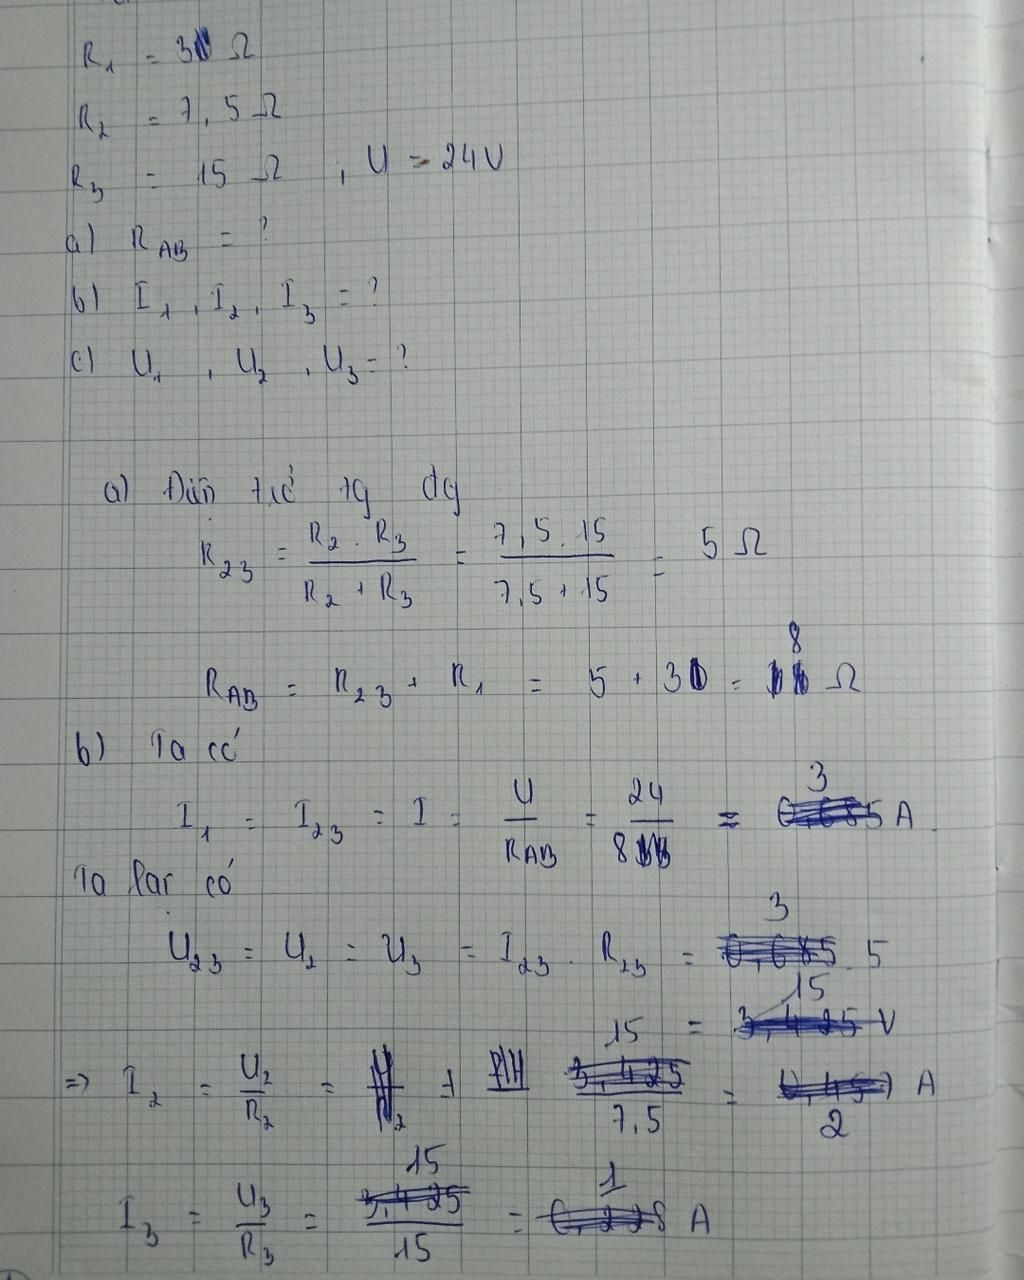 R₁ = 3 Ω
R₂ = 7,5 Ω
R₃ = 15 Ω , U = 24V
a) R_AB = ?
b) I₁, I₂, I₃ = ?
c) U₁, U₂, U₃ = ?
a) Điện trở tg đg
R₂₃ = (R₂ . R₃)/(R₂ + R₃) = (7,5 . 15)/(7,5 + 15) = 5 Ω
R_AB = R₂₃ + R₁ = 5 + 3 = 8 Ω
b) Ta có
I₁ = I₂₃ = I = U/R_AB = 24/8 = 3 A.
Ta lại có
U₂₃ = U₂ = U₃ = I₂₃ . R₂₃ = 3 . 5
= 15 V
=> I₂ = U₂/R₂ = 15/7,5 = 2 A
I₃ = U₃/R₃ = 15/15 = 1 A